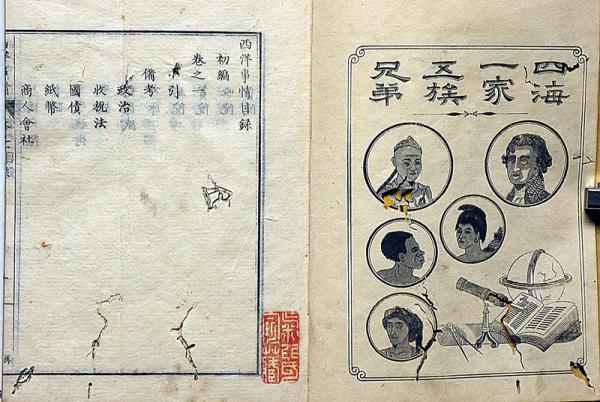 四海
一家
五族
兄弟
西洋事情目録
初編
卷之一
小引
備考
政治
收税法
國債
紙幣
商人會社